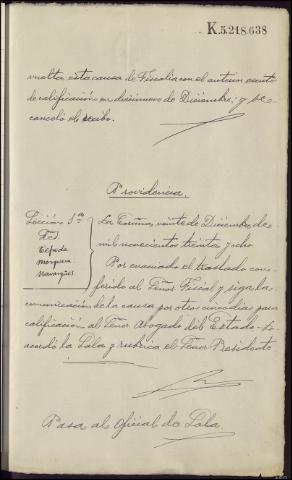 K.5.218.638
vuelta esta causa de Fiscalía con el anterior escrito
de calificación en diecinueve de Diciembre; y se
canceló el recibo.
Providencia.
Sección 1ª
La Coruña, veinte de Diciembre de
mil novecientos treinta y ocho
Por evacuado el traslado con-
ferido al Señor Fiscal y siga la
comunicación de la causa por otros cinco días para
calificación al Señor Abogado del Estado. Lo
acordó la Sala y rubrica el Señor Presidente
Pasa al Oficial de Sala.